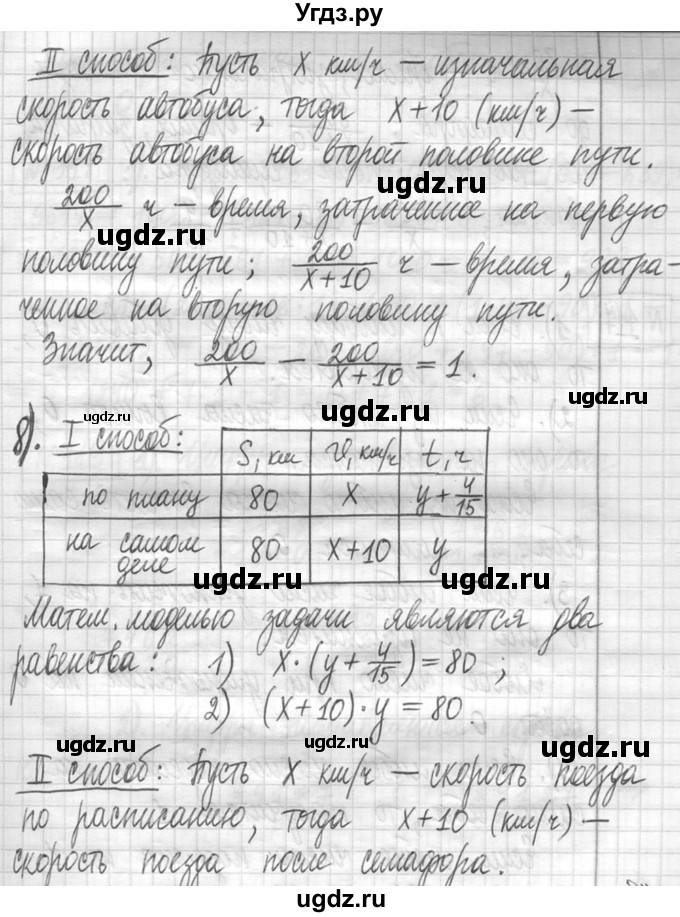 Угдз.ру
II способ: Пусть x км/ч — изначальная
скорость автобуса, тогда x+10 (км/ч) —
скорость автобуса на второй половине пути.
ugdz.ru
200/x ч — время, затраченное на первую
ugdz.ru
половину пути; 200/(x+10) ч — время, затра-
ugdz.ru
ченное на вторую половину пути.
Значит, 200/x − 200/(x+10) = 1.
ugdz.ru
ugdz.ru
ugdz.ru
8). I способ:
S, км | v, км/ч | t, ч
по плану | 80 | x | y + 4/15
на самом деле | 80 | x+10 | y
ugdz.ru
ugdz.ru
Матем. моделью задачи являются два
равенства: 1) x·(y + 4/15) = 80;
ugdz.ru
2) (x+10)·y = 80.
ugdz.ru
ugdz.ru
II способ: Пусть x км/ч — скорость поезда
ugdz.ru
по расписанию, тогда x+10 (км/ч) —
скорость поезда после семафора.
ugdz.ru
ugdz.ru